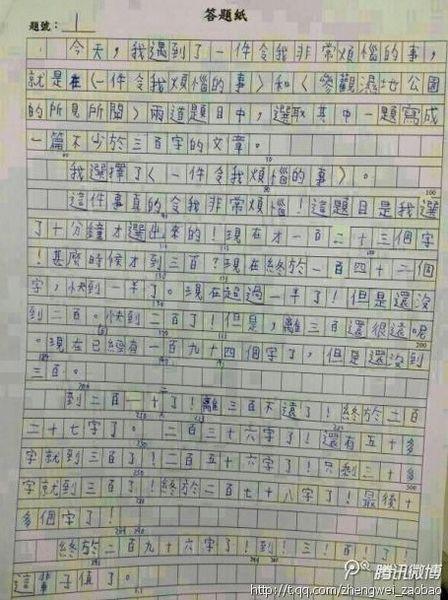 答題紙
題號：1
今天，我遇到了一件令我非常煩惱的事，
就是在〈一件令我煩惱的事〉和〈參觀濕地公園
的所見所聞〉兩道題目中，選取其中一題寫成
一篇不少於三百字的文章。
我選擇了〈一件令我煩惱的事〉。
100
這件事真的令我非常煩惱！這題目是我選
了十分鐘才選出來的！現在才一百二十三個字
！甚麼時候才到三百？現在終於一百四十二個
字，快到一半了。現在超過一半了！但是還沒
到二百。快到二百了！但是，離三百還很遠呢
200
。現在已經有一百九十四個字了，但是還沒到
三百。
到二百一十了！離三百不遠了！終於二百
二十七字了。二百三十六字了！還有五十多
字就到三百了！二百五十六字了！只剩三十多
300
字就到三百了！終於二百七十八字了！最後十
多個字了！
終於二百九十六字了！到！三百！了！
這輩子值了。
腾讯微博
http://t.qq.com/zhengwei_zaobao